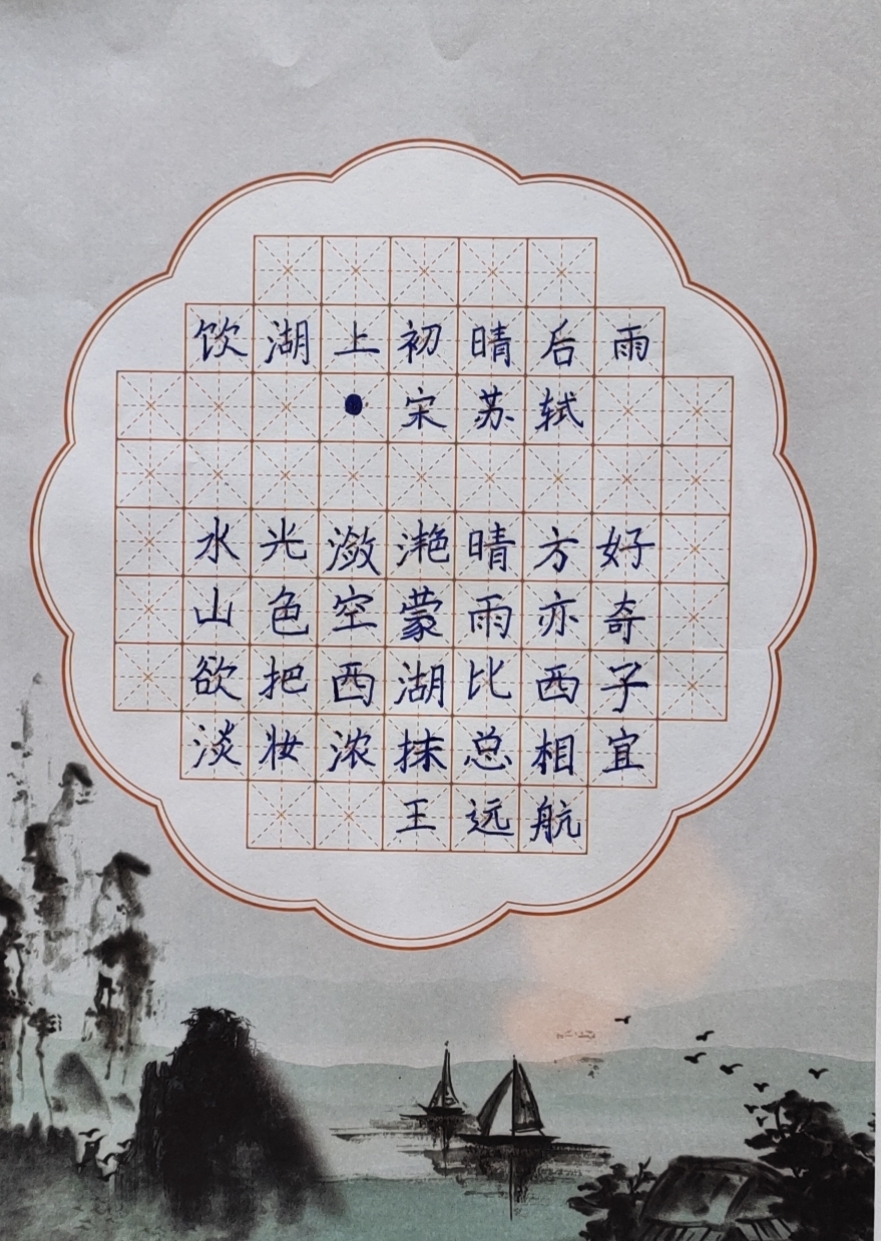 饮湖上初晴后雨
●宋苏轼
水光潋滟晴方好
山色空蒙雨亦奇
欲把西湖比西子
淡妆浓抹总相宜
王远航